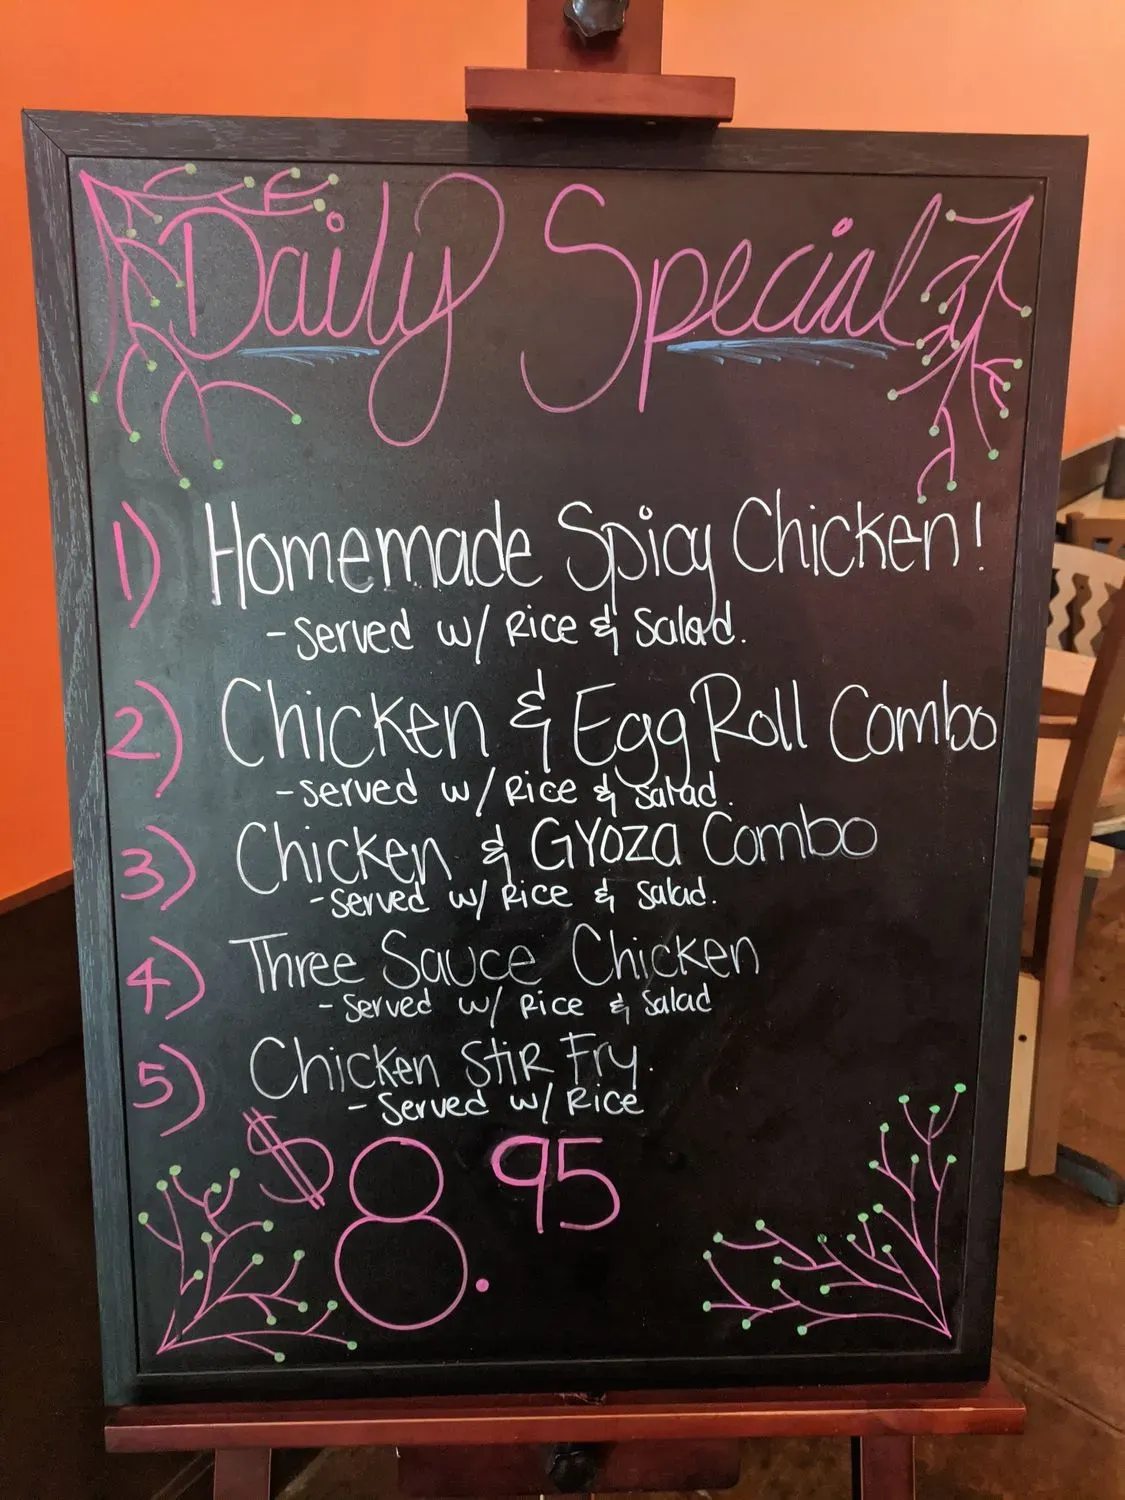 Daily Special
1) Homemade Spicy Chicken!
- Served w/ Rice & Salad.
2) Chicken & Egg Roll Combo
- Served w/ Rice & Salad.
3) Chicken & GYOZA Combo
- Served w/ Rice & Salad.
4) Three Sauce Chicken
- Served w/ Rice & Salad
5) Chicken Stir Fry.
- Served w/ Rice
$8.95